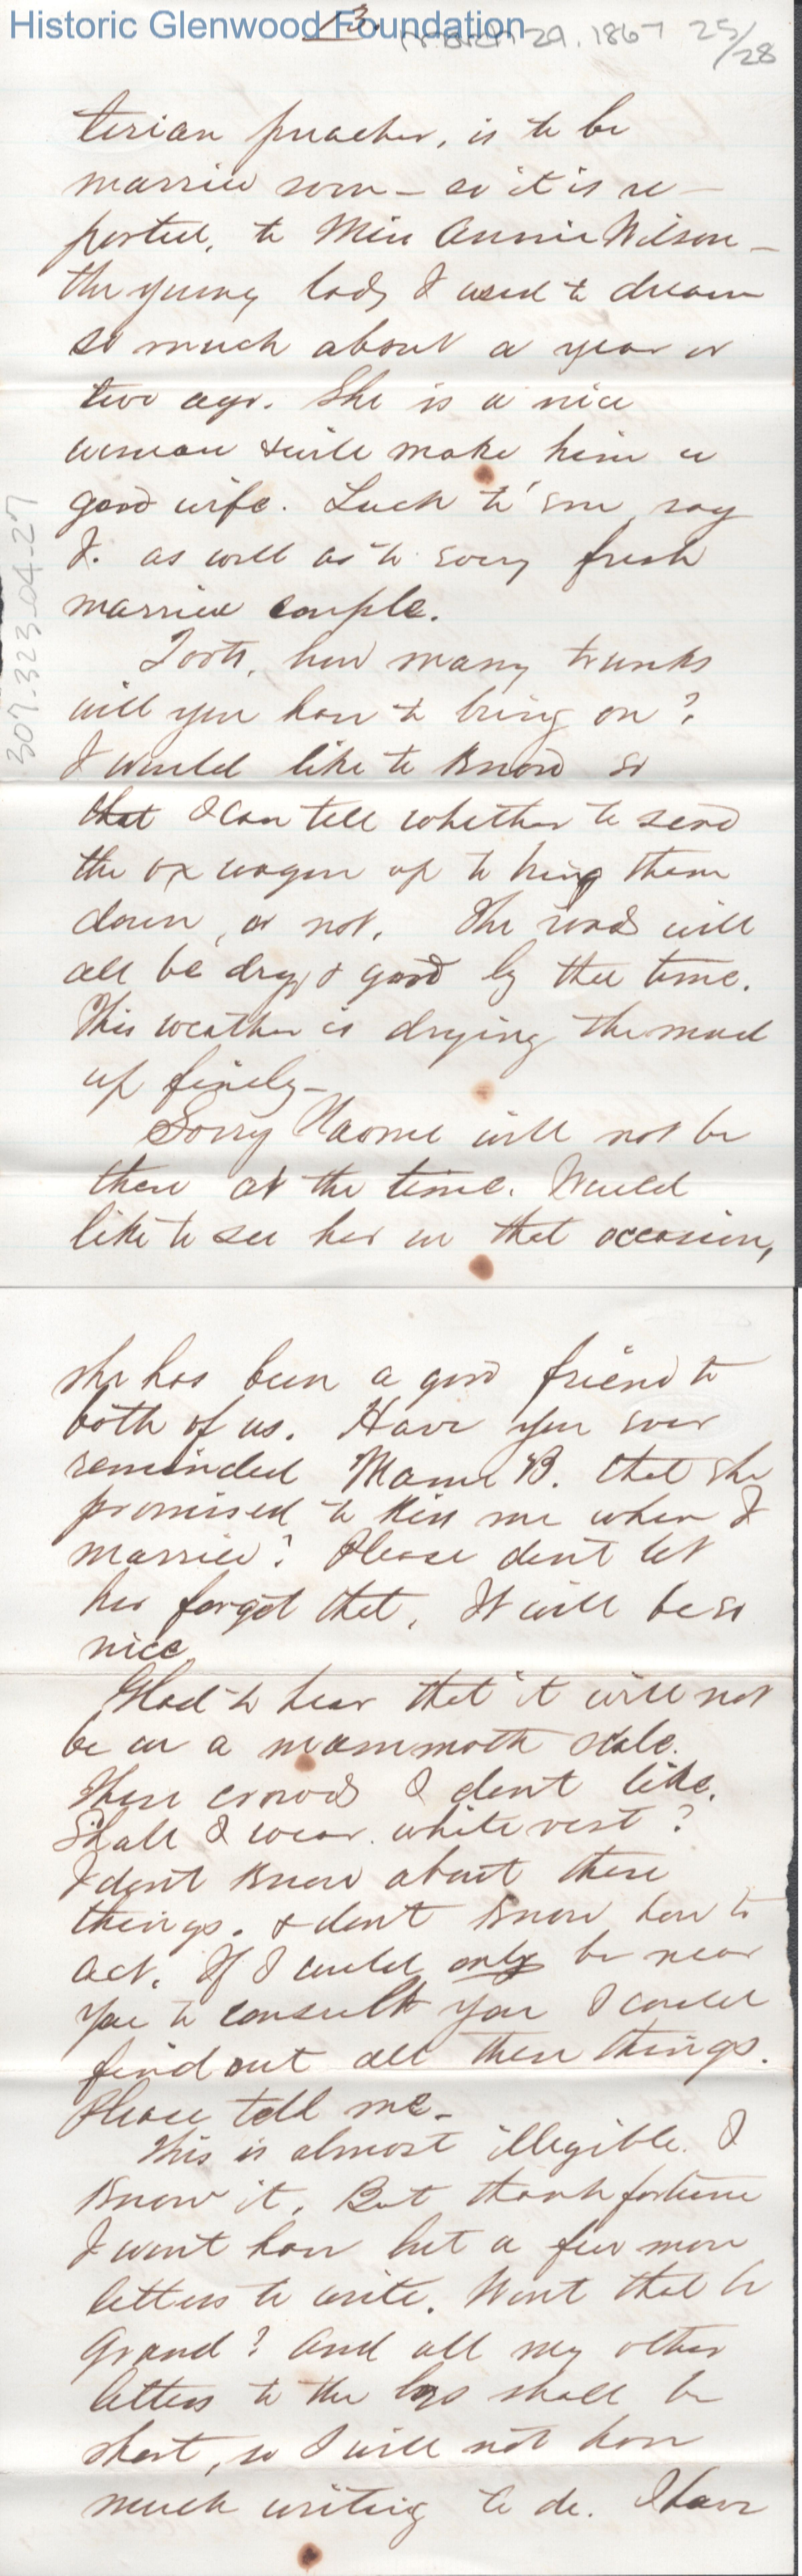 Historic Glenwood Foundation
13.
March 29, 1867 25/28
307.323.04-27
terian preacher, is to be
married soon – so it is re-
ported, to Miss Annie Wilson –
the young lady I used to dream
so much about a year or
two ago. She is a nice
woman & will make him a
good wife. Luck to 'em say
I. as well as to every fresh
married couple.
Toots, how many trunks
will you have to bring on?
I would like to know so
that I can tell whether to send
the ox wagon up to bring them
down, or not. The roads will
all be dry & good by the time.
This weather is drying the mud
up finely –
Sorry Naomi will not be
there at the time. Would
like to see her on that occasion,
she has been a good friend to
both of us. Have you ever
reminded Mame B. that she
promised to kiss me when I
married? Please dont let
her forget that. It will be so
nice
Glad to hear that it will not
be on a mammoth scale.
These crowds I dont like.
Shall I wear white vest?
I dont know about these
things. & dont know how to
act. If I could only be near
you to consult you I could
find out all these things.
Please tell me –
This is almost illegible. I
know it. But thank fortune
I wont have but a few more
letters to write. Wont that be
grand? And all my other
letters to the boys shall be
short, so I will not have
much writing to do. I have